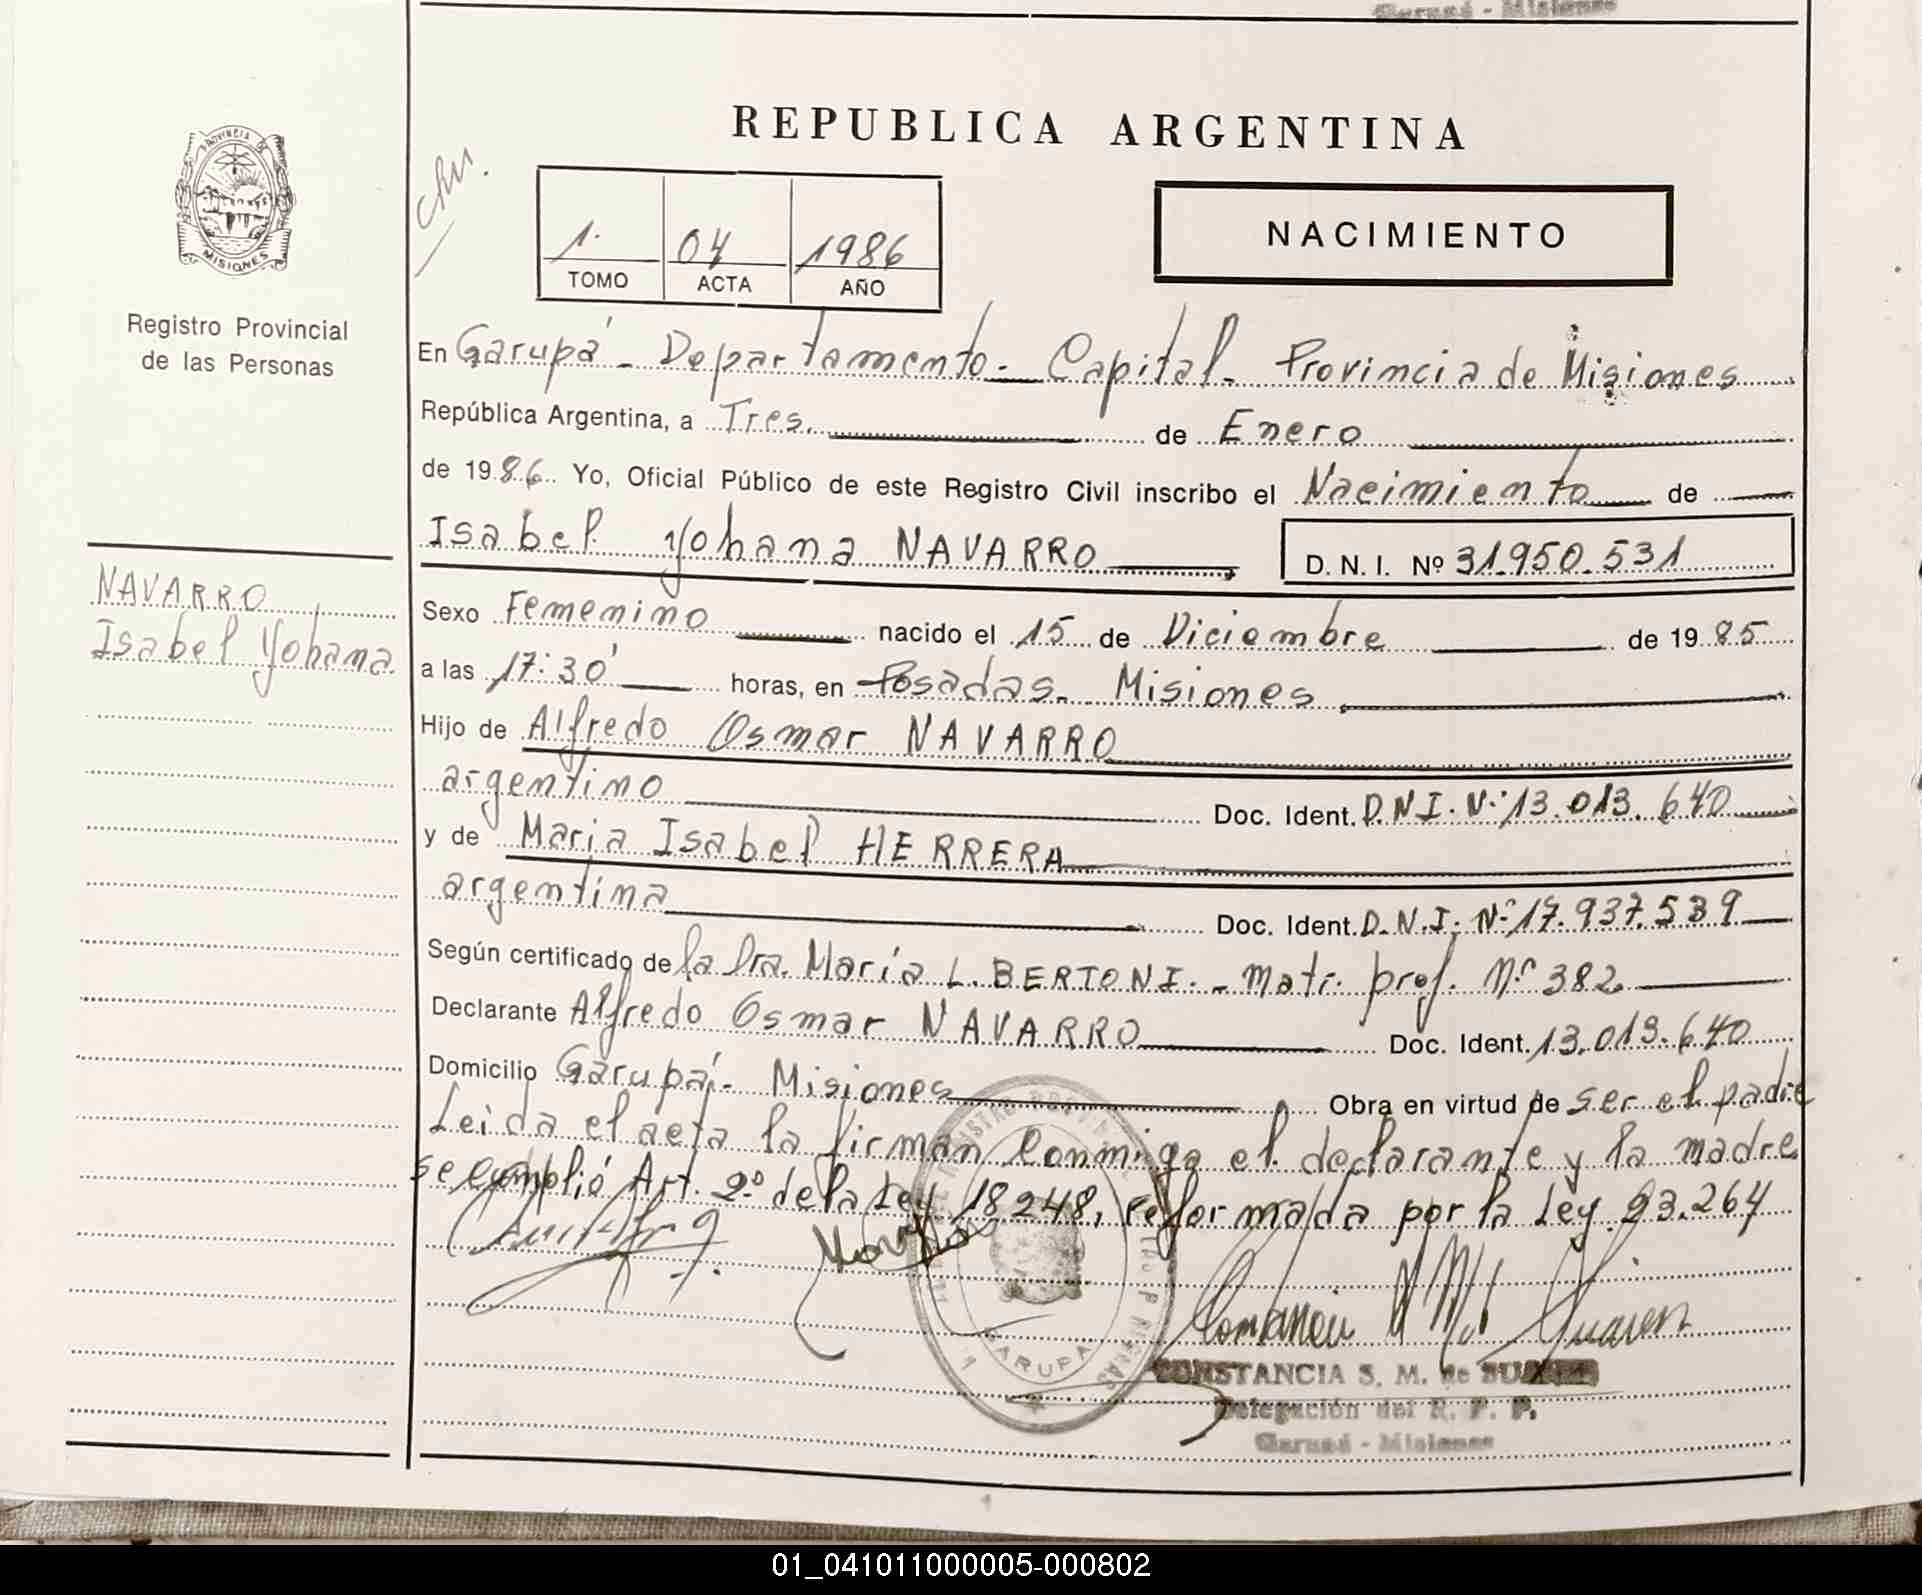 Garupá - Misiones
REPUBLICA ARGENTINA
PROVINCIA DE
MISIONES
Registro Provincial
de las Personas
1. 04 1986
TOMO ACTA AÑO
NACIMIENTO
En Garupá - Departamento - Capital - Provincia de Misiones
República Argentina, a Tres. de Enero
de 1986. Yo, Oficial Público de este Registro Civil inscribo el Nacimiento de
Isabel Yohana NAVARRO D. N. I. Nº 31.950.531
NAVARRO
Isabel Yohana
Sexo Femenino nacido el 15 de Diciembre de 1985
a las 17:30' horas, en Posadas - Misiones
Hijo de Alfredo Osmar NAVARRO
argentino Doc. Ident. D.N.I. Nº 13.013.640
y de Maria Isabel HERRERA
argentina Doc. Ident. D.N.I. Nº 17.937.539
Según certificado de la Dra. María L. BERTONI. - Matr. prof. Nº 382
Declarante Alfredo Osmar NAVARRO Doc. Ident. 13.013.640
Domicilio Garupá - Misiones Obra en virtud de ser el padre
Leida el acta la firman conmigo el declarante y la madre
se cumplió Art. 2º de la Ley 18248, reformada por la Ley 23.264
GARUPA
CONSTANCIA S. M. de SUAREZ
Delegación del R. P. P.
Garupá - Misiones
01_041011000005-000802